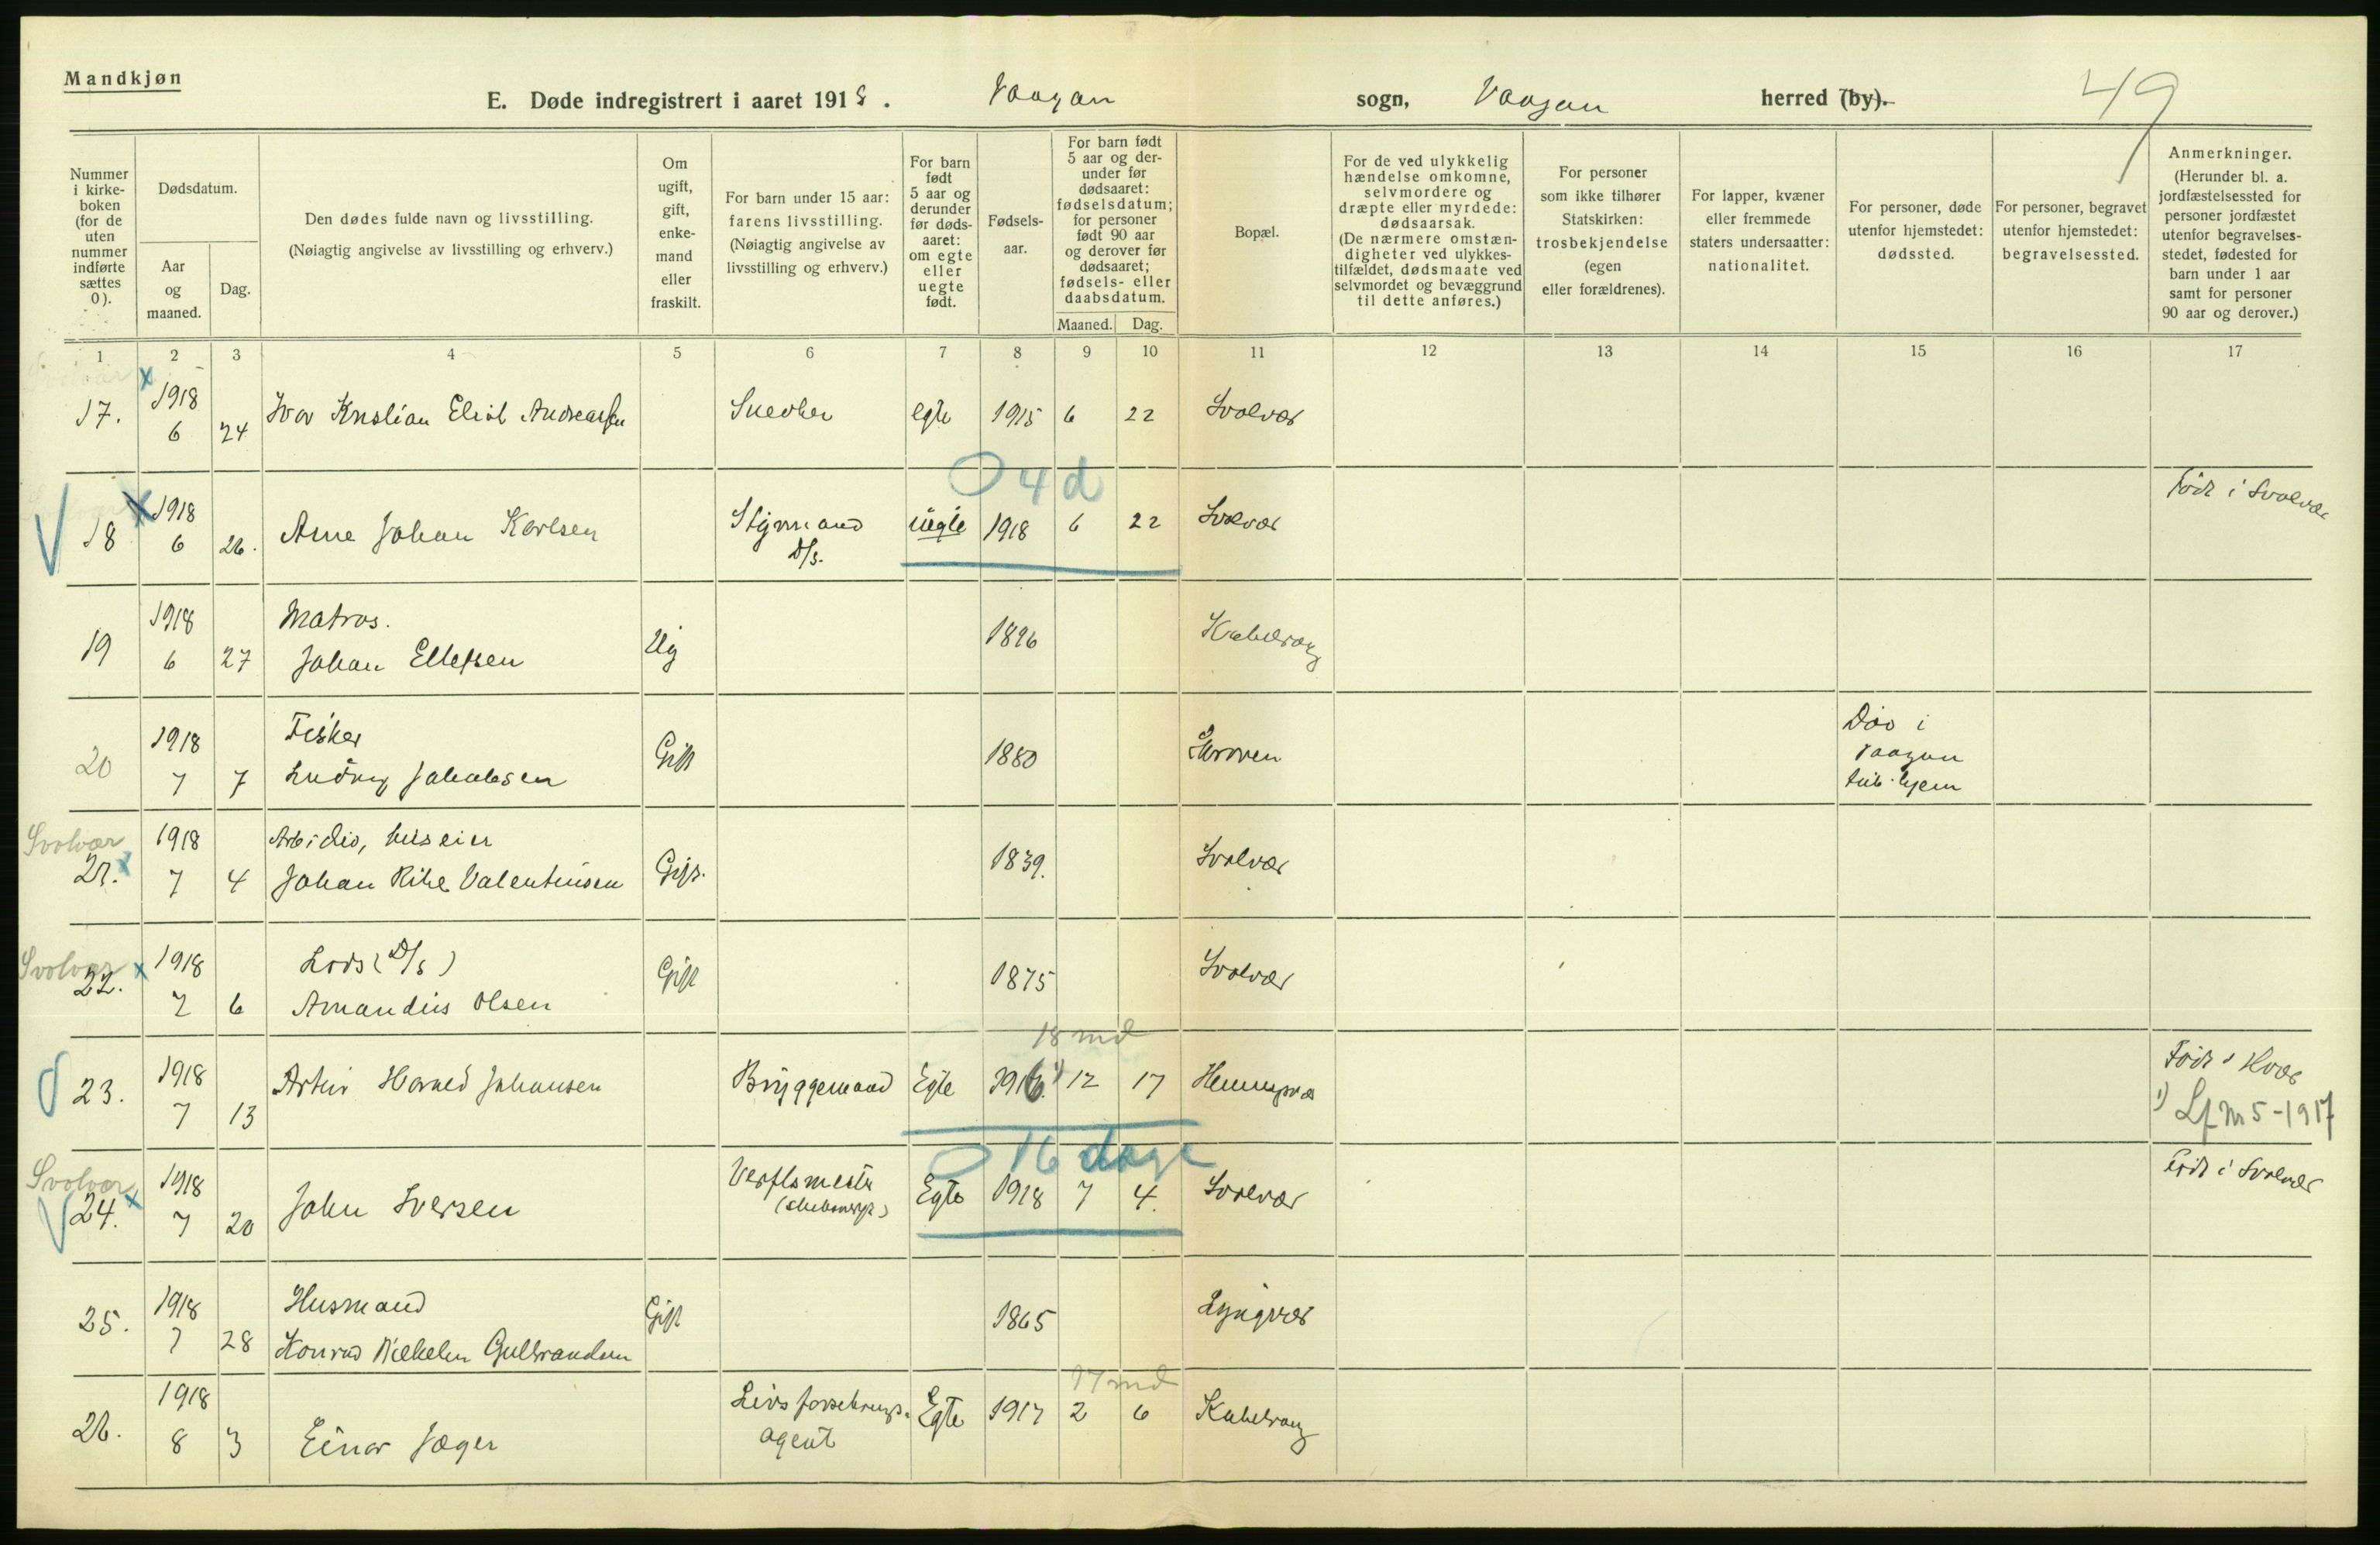 Mandkjøn
49
E. Døde indregistrert i aaret 1918. Vaagan sogn, Vaagan herred (by).
Nummer i kirke-boken (for de uten nummer indførte sættes 0).
Dødsdatum.
Aar og maaned.
Dag.
Den dødes fulde navn og livsstilling.
(Nøiagtig angivelse av livsstilling og erhverv.)
Om ugift, gift, enke-mand eller fraskilt.
For barn under 15 aar: farens livsstilling.
(Nøiagtig angivelse av livsstilling og erhverv.)
For barn født 5 aar og derunder før døds-aaret: om egte eller uegte født.
Fødsels-aar.
For barn født 5 aar og der-under før dødsaaret: fødselsdatum; for personer født 90 aar og derover før dødsaaret; fødsels- eller daabsdatum.
Maaned.
Dag.
Bopæl.
For de ved ulykkelig hændelse omkomne, selvmordere og dræpte eller myrdede: dødsaarsak.
(De nærmere omstæn-digheter ved ulykkes-tilfældet, dødsmaate ved selvmordet og bevæggrund til dette anføres.)
For personer som ikke tilhører Statskirken: trosbekjendelse (egen eller forældrenes).
For lapper, kvæner eller fremmede staters undersaatter: nationalitet.
For personer, døde utenfor hjemstedet: dødssted.
For personer, begravet utenfor hjemstedet: begravelsessted.
Anmerkninger.
(Herunder bl. a. jordfæstelsessted for personer jordfæstet utenfor begravelses-stedet, fødested for barn under 1 aar samt for personer 90 aar og derover.)
1 2 3 4 5 6 7 8 9 10 11 12 13 14 15 16 17
Svolvær x
17. 1918 6 24 Ivar Kristian Eliot Andreassen Snedker egte 1915 6 22 Svolvær
O 4 d
18 x 1918 6 26. Arne Johan Karlsen Styrmand D/s. uegte 1918 6 22 Svolvær Født i Svolvær
19 1918 6 27 Matros. Johan Ellefsen Ug 1896 Kabelvaag
20 1918 7 7 Fisker Ludvig Jakobsen Gift 1880 Skroven Død i Vaagan tub. hjem
Svolvær
21. x 1918 7 4 huseier Johan Rike Valentinsen Gift. 1839. Svolvær
Svolvær
22. x 1918 7 6 Lods (D/s) Amandus Olsen Gift 1875 Svolvær
18 md
23. 1918 7 13 Artur Harald Johansen Bryggemand Egte 1916. 1) 12 17 Henningsvær Født i
1) Lf nr 5-1917
O 16 dage
Svolvær
24. x 1918 7 20 John Iversen Verftsmester Egte 1918 7 4. Svolvær Født i Svolvær
25. 1918 7 28 Husmand Konrad Vilhelm Gulbrandsen Gift 1865 Lyngvær
17 md
26. 1918 8 3 Einar Jæger Livsforsikrings-agent Egte 1917 2 6 Kabelvaag